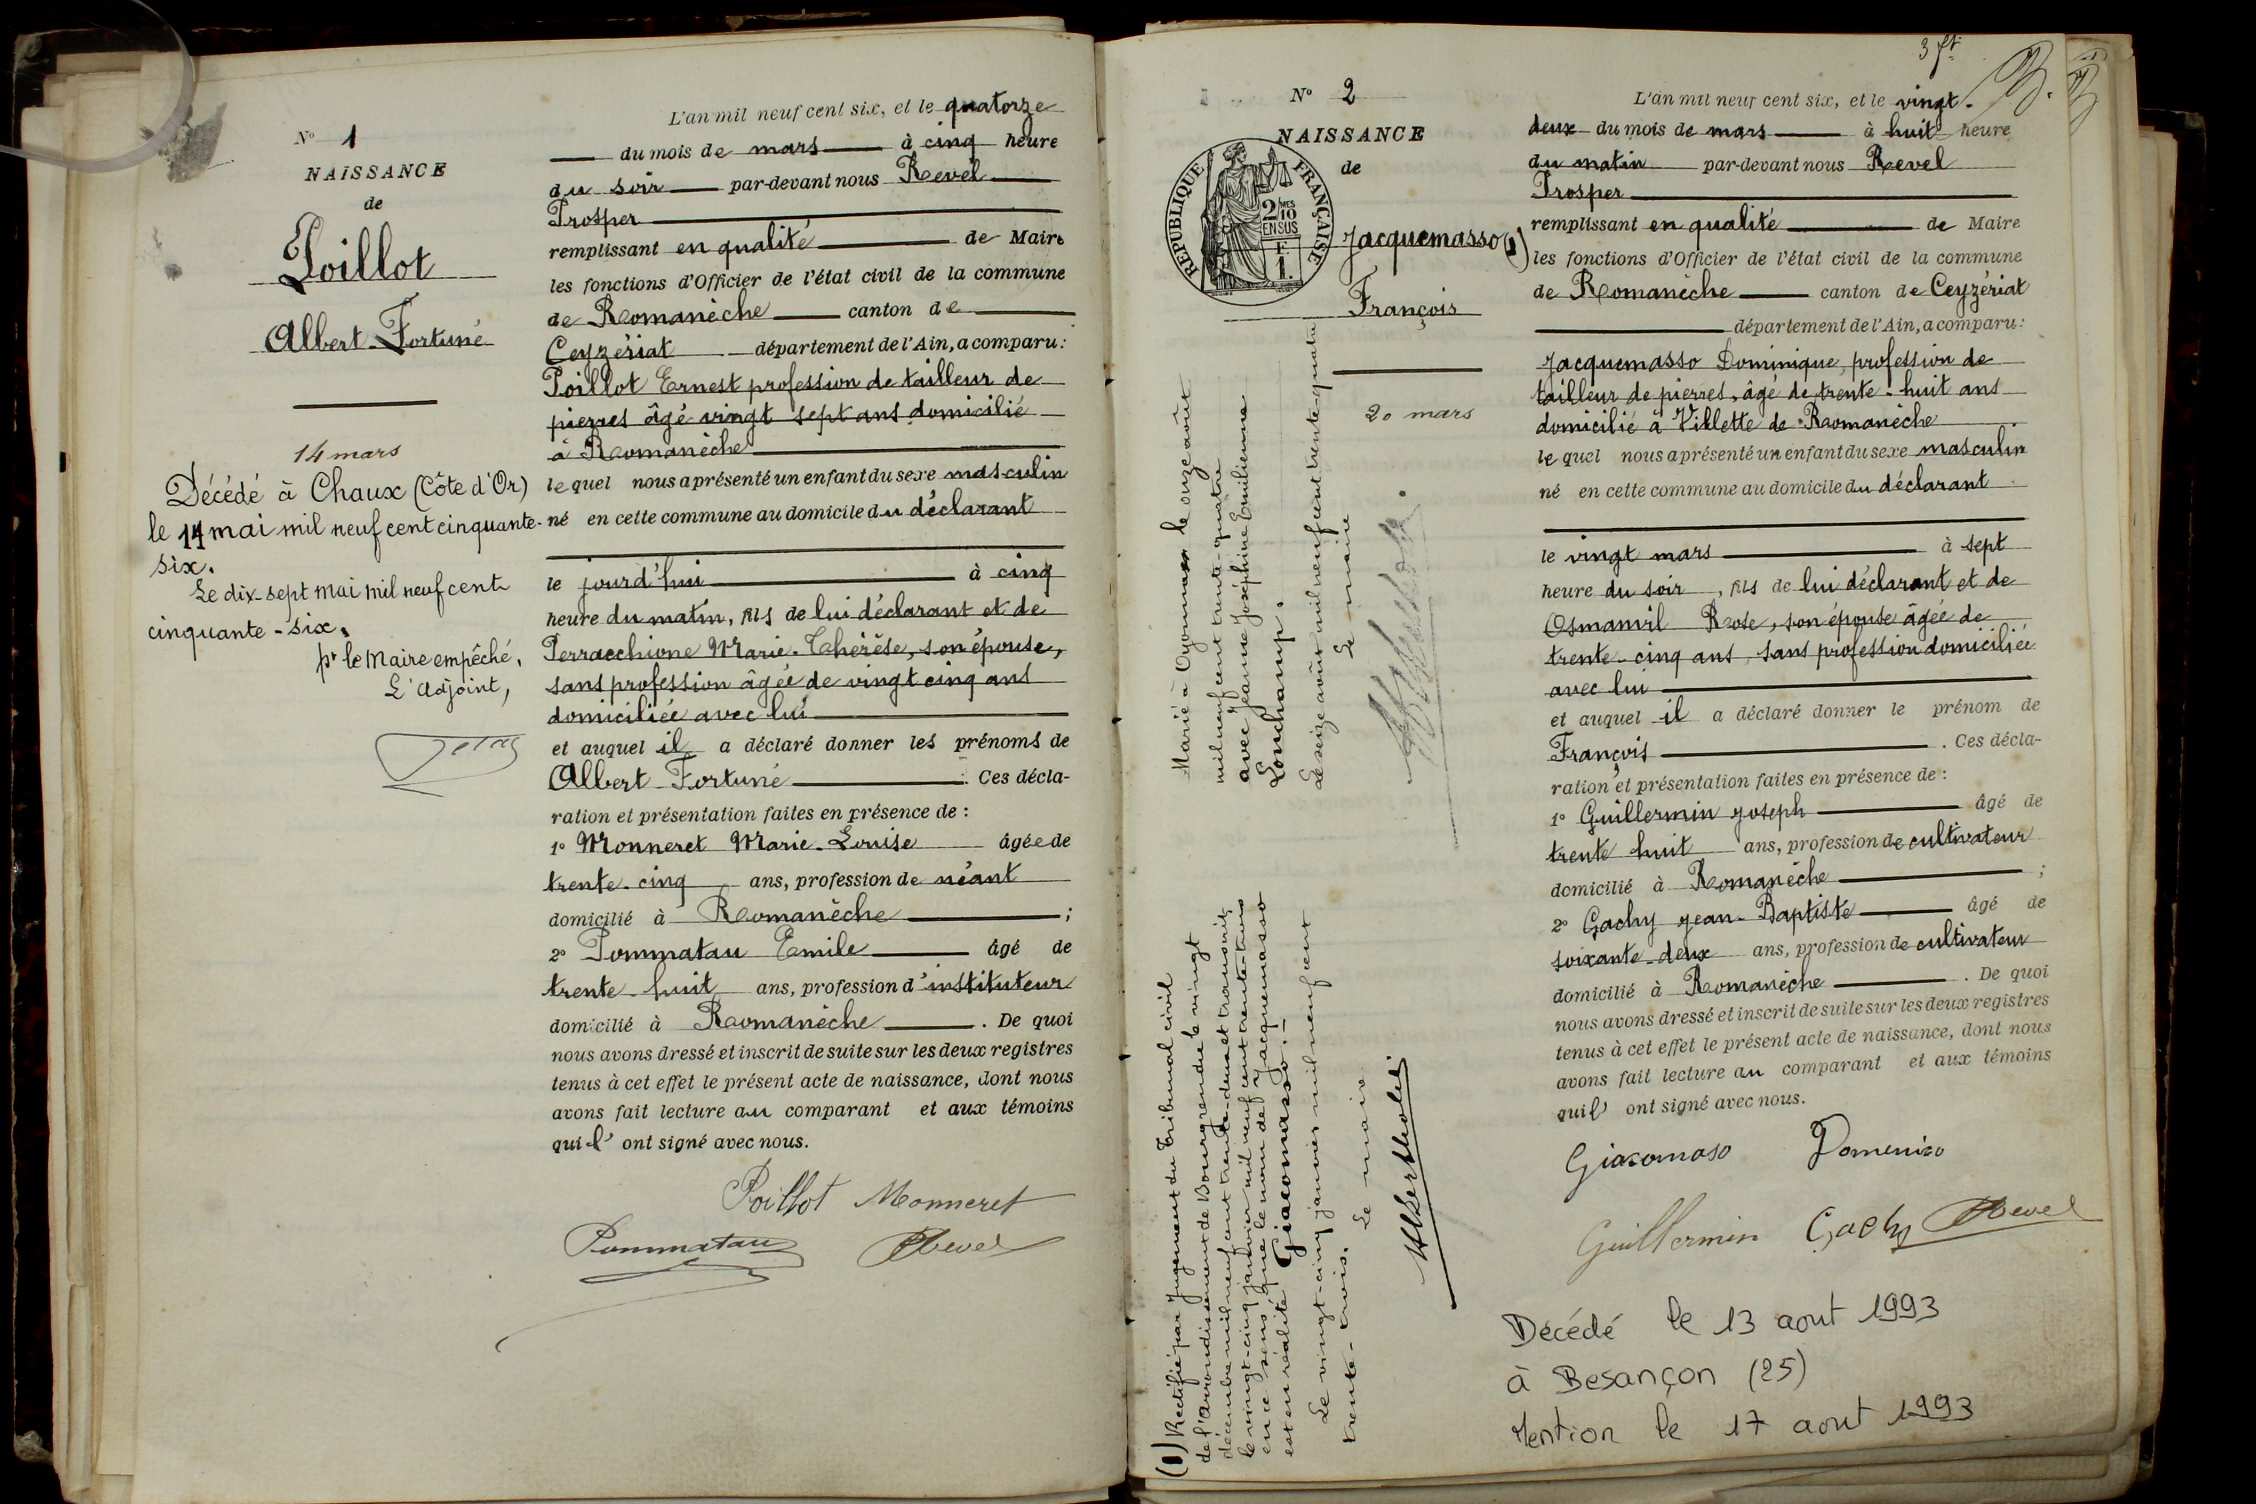 N° 1
NAISSANCE
de
Poillot
Albert Fortuné
14 mars
Décédé à Chaux (Côte d'Or)
le 14 mai mil neuf cent cinquante-
six.
Le dix-sept mai mil neuf cent
cinquante-six.
pr le Maire empêché,
L'adjoint,
L'an mil neuf cent six, et le quatorze
du mois de mars à cinq heure
du soir par-devant nous Revel
Prosper
remplissant en qualité de Maire
les fonctions d'Officier de l'état civil de la commune
de Romanèche canton de
Ceyzériat département de l'Ain, a comparu :
Poillot Ernest profession de tailleur de
pierres âgé vingt sept ans domicilié
à Romanèche
lequel nous a présenté un enfant du sexe masculin
né en cette commune au domicile du déclarant
le jourd'hui à cinq
heure du matin, fils de lui déclarant et de
Perracchione Marie-Thérèse, son épouse,
sans profession âgée de vingt cinq ans
domiciliée avec lui
et auquel il a déclaré donner les prénoms de
Albert Fortuné . Ces décla-
ration et présentation faites en présence de :
1° Monneret Marie-Louise âgée de
trente-cinq ans, profession de néant
domicilié à Romanèche ;
2° Pommatau Emile âgé de
trente-huit ans, profession d'instituteur
domicilié à Romanèche . De quoi
nous avons dressé et inscrit de suite sur les deux registres
tenus à cet effet le présent acte de naissance, dont nous
avons fait lecture au comparant et aux témoins
qui l' ont signé avec nous.
Poillot Monneret
Pommatau Revel
3 ft
N° 2
NAISSANCE
de
RÉPUBLIQUE FRANÇAISE
2/10 MES
EN SUS
F.
1.
Jacquemasso (1)
François
20 mars
Marié à Oyonnax le onze août
mil neuf cent trente-quatre
avec Jeanne Joséphine Emilienne
Lonchamp.
Le seize août mil neuf cent trente-quatre
Le maire
(1) Rectifié par jugement du Tribunal civil
de l'arrondissement de Bourg rendu le vingt
décembre mil neuf cent trente-deux et transcrit
le vingt-cinq janvier mil neuf cent trente-trois
en ce sens que le nom de Jacquemasso
est en réalité Giacomasso.
Le vingt-cinq janvier mil neuf cent
trente-trois. Le maire
L'an mil neuf cent six, et le vingt-
deux du mois de mars à huit heure
du matin par-devant nous Revel
Prosper
remplissant en qualité de Maire
les fonctions d'Officier de l'état civil de la commune
de Romanèche canton de Ceyzériat
département de l'Ain, a comparu :
Jacquemasso Dominique, profession de
tailleur de pierres, âgé de trente-huit ans
domicilié à Villette de Romanèche
lequel nous a présenté un enfant du sexe masculin
né en cette commune au domicile du déclarant
le vingt mars à sept
heure du soir, fils de lui déclarant et de
Osmanvil Rose, son épouse âgée de
trente-cinq ans sans profession domiciliée
avec lui
et auquel il a déclaré donner le prénom de
François . Ces décla-
ration et présentation faites en présence de :
1° Guillermin Joseph âgé de
trente huit ans, profession de cultivateur
domicilié à Romanèche ;
2° Gachy Jean-Baptiste âgé de
soixante-deux ans, profession de cultivateur
domicilié à Romanèche . De quoi
nous avons dressé et inscrit de suite sur les deux registres
tenus à cet effet le présent acte de naissance, dont nous
avons fait lecture au comparant et aux témoins
qui l' ont signé avec nous.
Giacomaso Domenico
Guillermin Gachy Revel
Décédé le 13 aout 1993
à Besançon (25)
Mention le 17 aout 1993